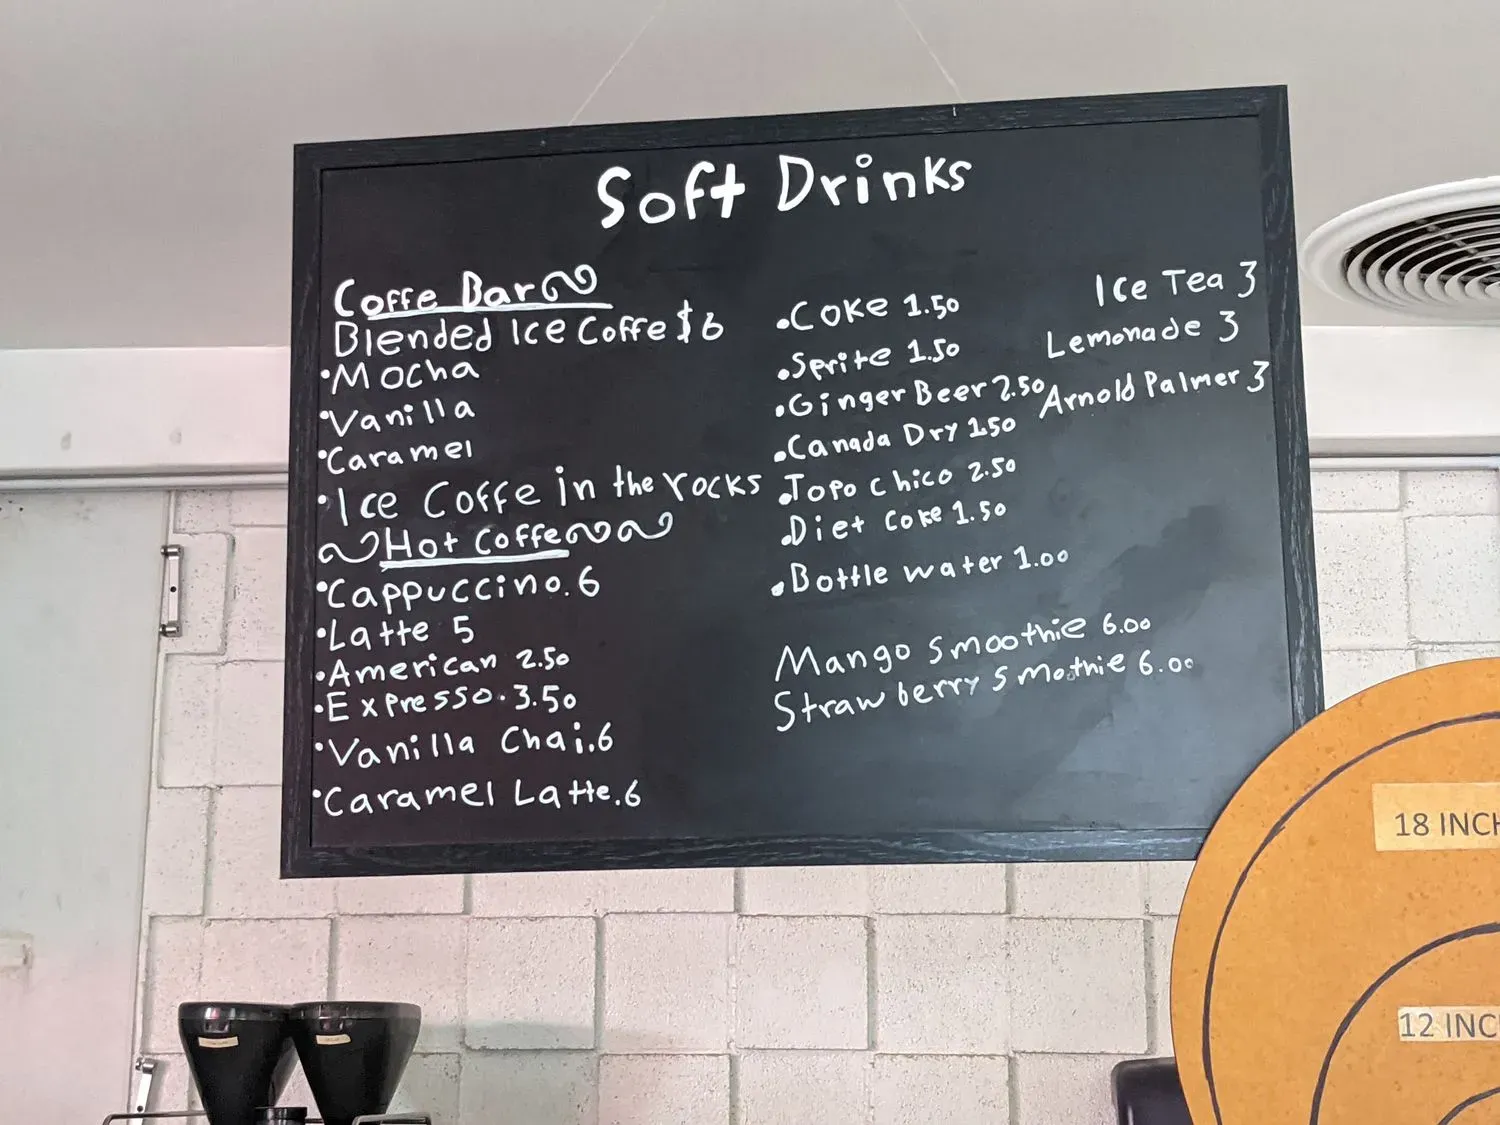 Soft Drinks
Coffe Bar
Blended Ice Coffe $6
•Mocha
•Vanilla
•Caramel
•Ice Coffe in the rocks
Hot Coffe
•Cappuccino.6
•Latte 5
•American 2.50
•Expresso.3.50
•Vanilla Chai.6
•Caramel Latte.6
•Coke 1.50
•Sprite 1.50
•Ginger Beer 2.50
•Canada Dry 1.50
•Topo chico 2.50
•Diet Coke 1.50
•Bottle water 1.00
Mango Smoothie 6.00
Strawberry Smothie 6.00
Ice Tea 3
Lemonade 3
Arnold Palmer 3
18 INCH
12 INC